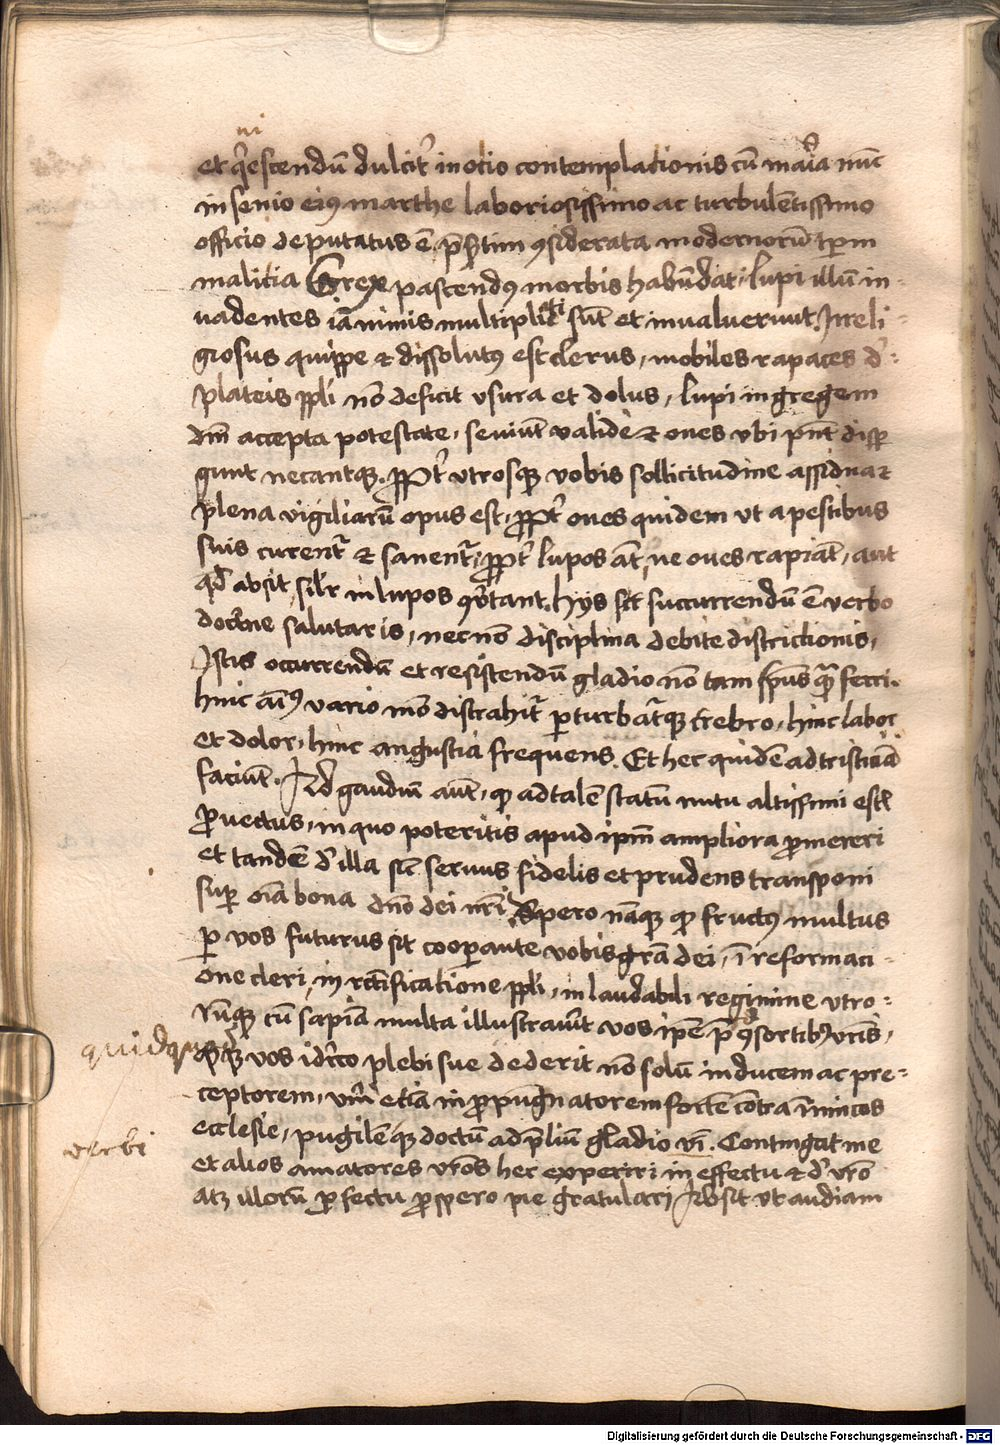 ni
et q̃escendũ dulcit͛ in otio contemplationis cũ maria nũc
in senio eiꝰ marthe laboriosissimo ac turbulẽtissimo
officio deputatus ẽ p̃s̃tim ꝯsiderata modernorũ tp̃m
malitia Grex pascendꝰ morbis habũdat, lupi illũ in-
uadentes iã nimis multiplicati sũt et inualuerunt. Irreli-
giosus quippe ⁊ dissolutꝰ est clerus, mobiles rapaces d͛:
plateis ppl̃i nõ deficit vsura et dolus, lupi in gregem
dñi accepta potestate, seuiũt valide ⁊ oues vbi pñt disp̱
gunt necantqꝫ. propt͛ vtrosqꝫ vobis sollicitudine assidua ⁊
plena vigiliarũ opus est, propt͛ oues quidem vt a pestibus
suis curent᷑ ⁊ sanent᷑, propt͛ lupos aũt, ne oues rapiãt, aut
qd̃ absit, sil̃r in lupos ꝯu͛tant. hys scꝫ succurrendũ ẽ verbo
doctrine salutaris, necnõ disciplina debite districtionis,
Istis occurrendũ et resistendũ gladio nõ tam sp̃us quã ferri.
hinc aĩꝰ vario mõ distrahit᷑ p̱turbat᷑qꝫ crebro, hinc labor
et dolor, hinc angustia frequens. Et hec quidẽ ad tristiciã
faciũt. Ad gaudiũ aũt, qꝫ ad talẽ statũ nutu altissimi estꝫ
ꝓuectus, in quo poteritis apud ipm̃ ampliora ꝓmereri
et tandẽ d͛ illa sic̃ seruus fidelis et prudens transponi
sup̱ oĩa bona dñi dei nr̃i. Spero nãqꝫ qꝫ fructꝰ multus
p̱ vos futurus sit coop̱ante vobis gr̃a dei, ĩ reformaci-
one cleri, in rectificatione ppl̃i, in laudabili regimine vtro-
rũqꝫ cũ sapiã multa illustrauit vos ip̃e p̃ ꝯsortibꝰ vr̃is,
quidquam
vos id͛rco plebi sue dederit nõ solũ in ducem ac pre-
ceptorem, vm̃ etiã in propugnatorem fortẽ cõtra inimicos
ecclesie, pugilẽqꝫ doctũ ad p̃liũ gladio vi. Contingat me
verbi
et alios amatores vr̃os hec experiri in effectu ⁊ d͛ vr̃o
atqꝫ illorũ ꝓfectu prospero pie gratulari Absit vt audiam
Digitalisierung gefördert durch die Deutsche Forschungsgemeinschaft - DFG